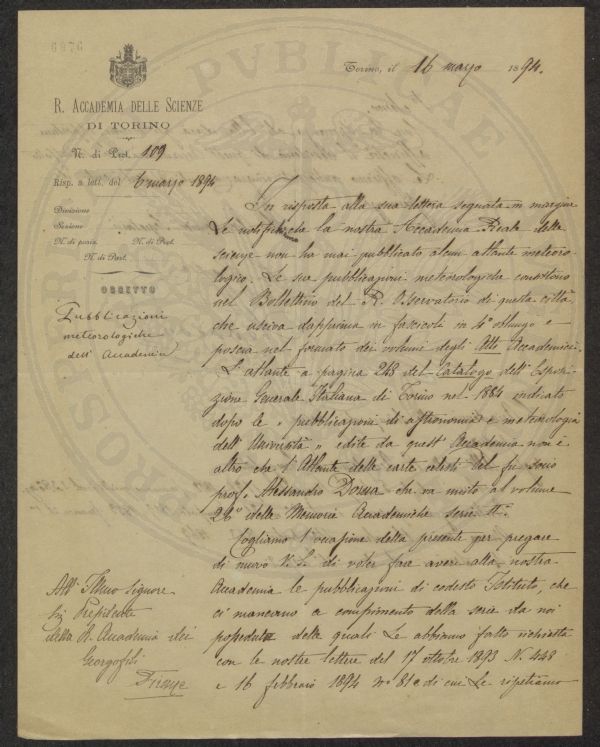 6976
Torino, il 16 marzo 1894.
R. ACCADEMIA DELLE SCIENZE
DI TORINO
N. di Prot. 109
Risp. a lett. del 6 marzo 1894
Divisione
Sezione
N. di posiz. N. di Prot.
N. di Part.
OGGETTO
Pubblicazioni
meteorologiche
dell' Accademia
In risposta alla sua lettera segnata in margine
Le notifico che la nostra Accademia Reale delle
scienze non ha mai pubblicato alcun atlante meteoro-
logico. Le sue pubblicazioni meteorologiche consistono
nel Bollettino del R. Osservatorio di questa città
che usciva dapprima in fascicoli in 4° oblungo e
poscia nel formato dei volumi degli Atti Accademici.
L'atlante a pagina 248 del Catalogo dell' Esposi-
zione Generale Italiana di Torino nel 1884 indicato
dopo le "pubblicazioni di astronomia e meteorologia
dell' Università" edite da quest' Accademia non è
altro che l'Atlante delle carte celesti del fu socio
prof. Alessandro Dorna che va unito al volume
28° delle Memorie Accademiche serie II.a
Cogliamo l'occasione della presente per pregare
di nuovo V. S. di voler fare avere alla nostra
Accademia le pubblicazioni di codesto Istituto, che
ci mancano a compimento della serie da noi
posseduta delle quali Le abbiamo fatto richiesta
con le nostre lettere del 17 ottobre 1893 N. 448
e 16 febbraio 1894 n° 81 e di cui Le ripetiamo
All' Illmo Signore
Presidente
della R. Accademia dei
Georgofili
Firenze